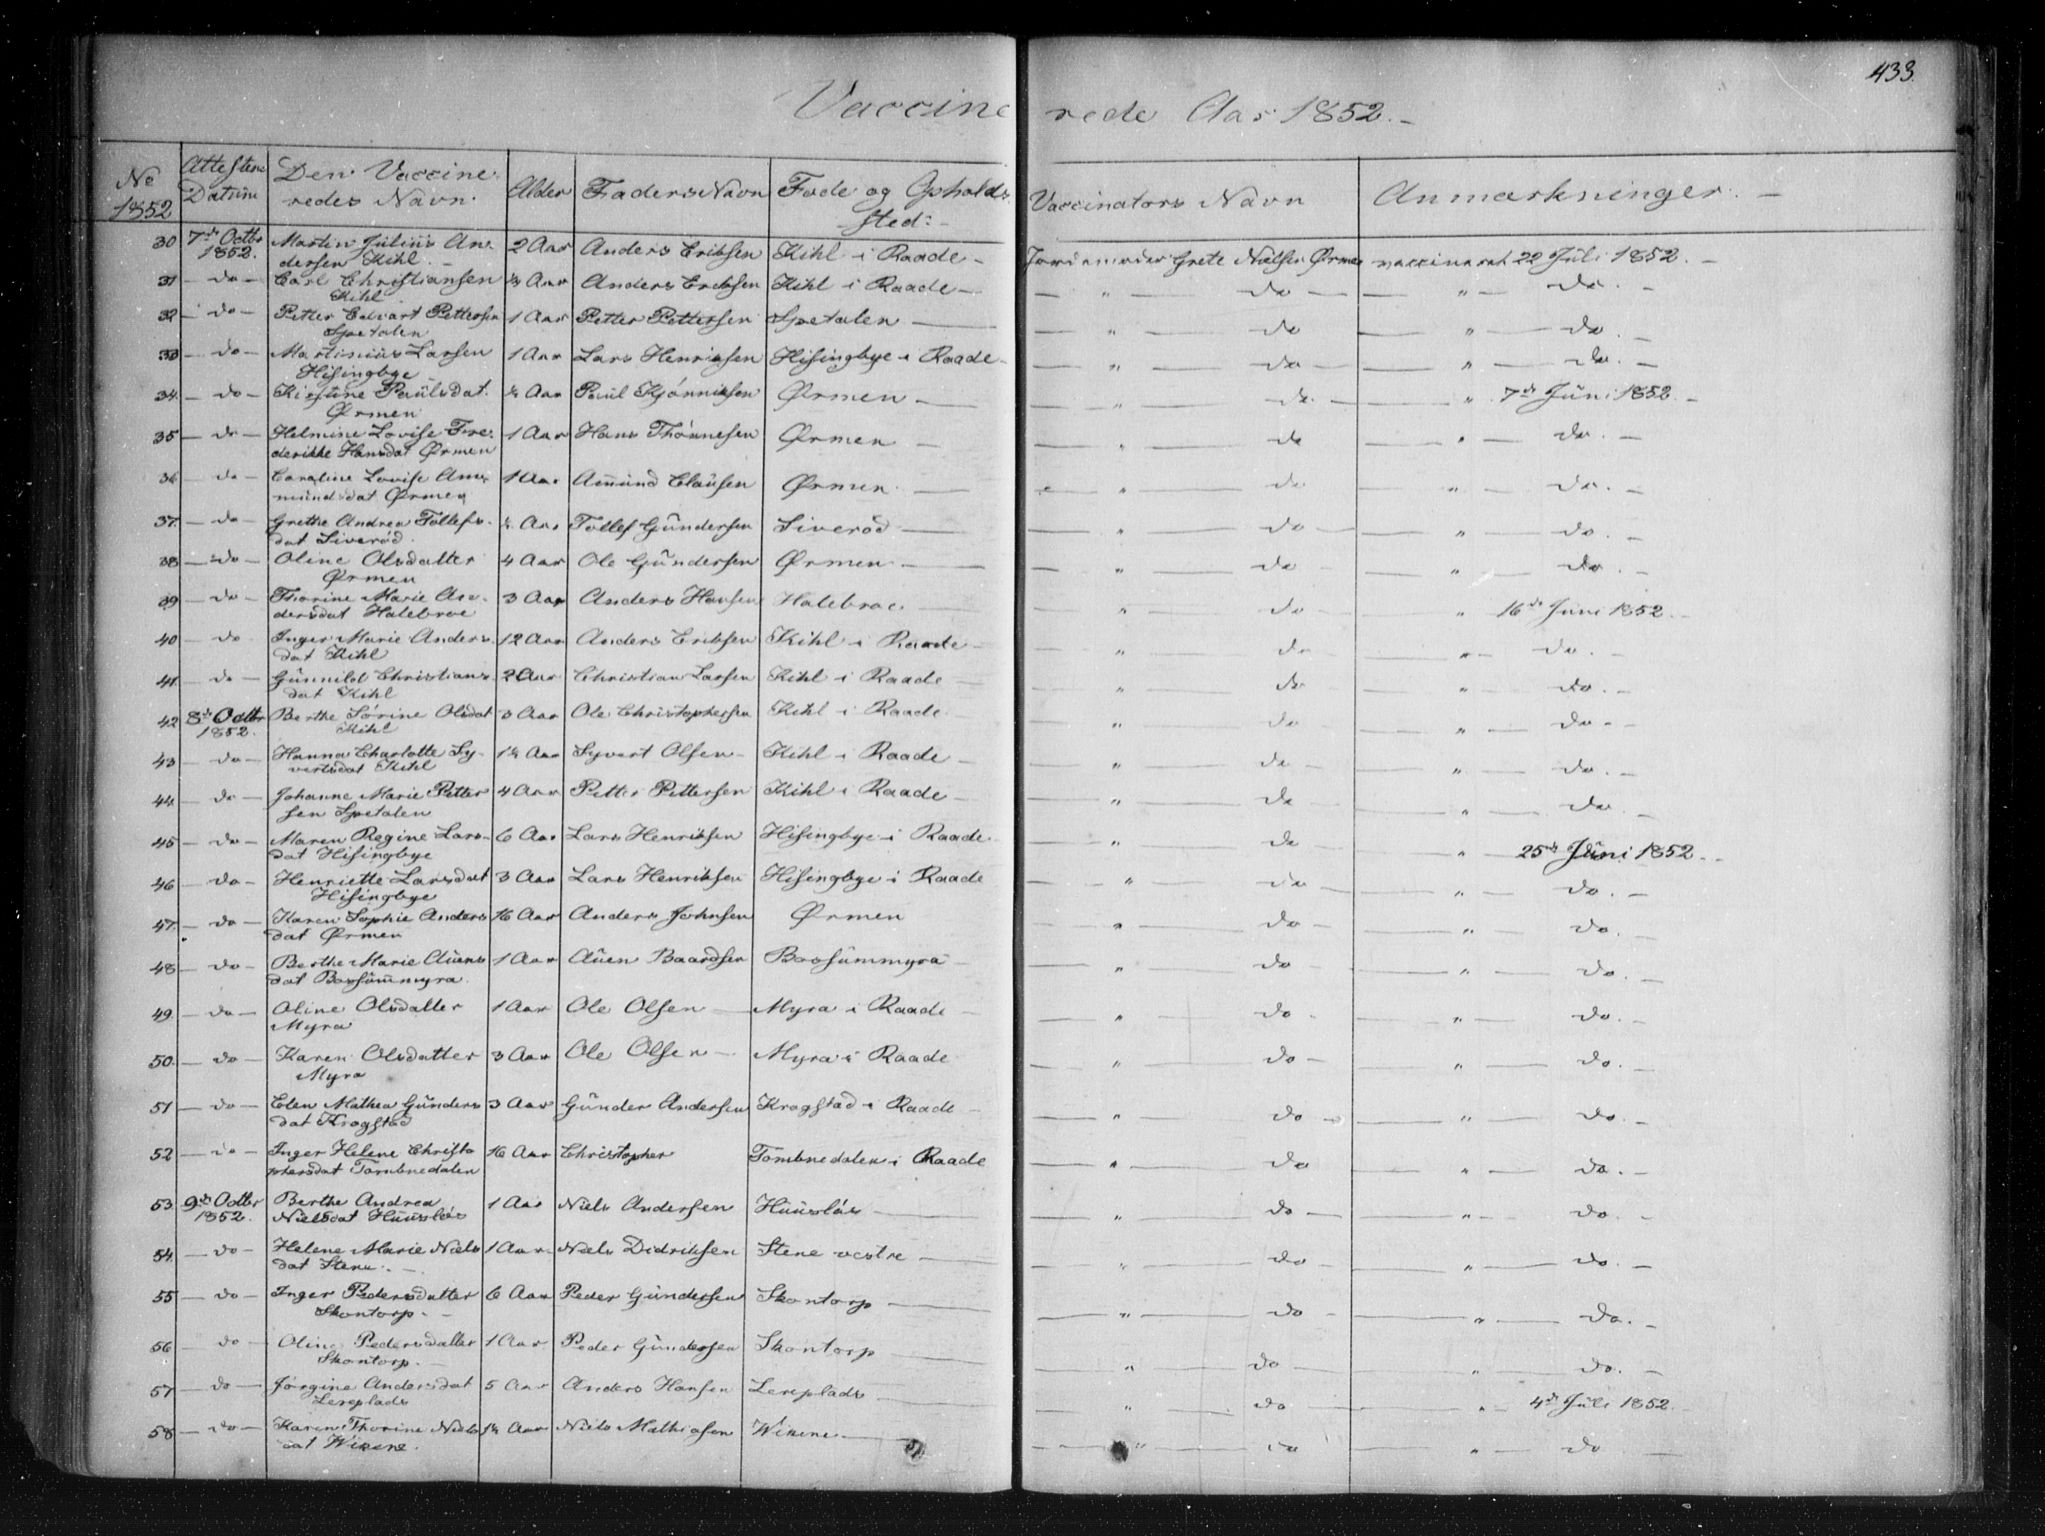 433.
Vaccinerede Aar 1852.-
No 1852 | Attestens Datum | Den Vaccineredes Navn. | Alder | Faders Navn | Føde og Opholds Sted:- | Vaccinators Navn | Anmærkninger.-
30 7de Octbr 1852. Martin Julius Andersen Kihl.- 2 Aar Anders Eriksen Kihl i Raade- Jordemoder Grete Nielsen Ørmen vaccineret 22 Juli 1852.-
31 -do- Carl Christiansen Kihl Aar Anders Eriksen Kihl i Raade- -"- do- -"- do.-
32 -do- Petter Edvart Pettersen Spetalen 1 Aar Petter Pettersen Spetalen- -"- do -"- do.-
33 -do- Martinius Larsen Hisingbye 1 Aar Lars Henriksen Hisingbye i Raade- -"- do- -"- do.-
34. -do- Kirstine Paulsdat. Ørmen Aar Paul Kjönniksen Ørmen- -"- do.- -"- 7de Juni 1852.-
35 -do- Helmine Lovise Frederikke Hansdat Ørmen 1 Aar Hans Thönnesen Ørmen- -"- do -"- do.-
36 -do- Caroline Lovise Amundsdat Ørmen 1 Aar Amund Clausen Ørmen- -"- do -"- do.-
37. -do- Grethe Andrea Tollefsdat Siveröd. Aar Tollef Gundersen Siveröd- -"- do- -"- do.-
38 -do- Oline Olsdatter Ørmen 4 Aar Ole Gundersen Ørmen- -"- do- -"- do.-
39 -do- Thorine Marie Andersdat Halebroe 3 Aar Anders Hansen Halebroe- -"- do- " 16de Juni 1852.-
40 -do Inger Marie Andersdat Kihl 12 Aar Anders Eriksen Kihl i Raade- -"- do -"- do.-
41 -do- Gunnild Christiansdat Kihl 2 Aar Christian Larsen Kihl i Raade- -"- do -"- do.-
42 8de Octbr 1852. Berthe Sörine Olsdat Kihl 3 Aar Ole Christophersen Kihl i Raade -"- do- -"- do-
43 -do- Hanna Charlotte Syvertsdat Kihl Aar Syvert Olsen- Kihl i Raade- -"- do- -"- do.-
44. -do- Johanne Marie Pettersen Spetalen 4 Aar Petter Pettersen Kihl i Raade- -"- do -"- do.-
45 -do- Maren Regine Larsdat Hisingbye 6 Aar Lars Henriksen Hisingbye i Raade- -"- do- " 25de Juni 1852.-
46 -do- Henriette Larsdat Hisingbye 3 Aar Lars Henriksen Hisingbye i Raade -"- do- -"- do.-
47. -do- Karen Sophie Andersdat Ørmen 16 Aar Anders Johnsen Ørmen " do- -"- do.-
48 -do- Berthe Marie Auensdat Bossummyra. 1 Aar Auen Baardsen Bossummyra- -"- do- -"- do.-
49. -do- Oline Olsdatter Myra 1 Aar Ole Olsen- Myra i Raade- -"- do- -"- do.-
50. -do- Karen Olsdatter Myra 3 Aar Ole Olsen- Myra i Raade -"- do- -"- do.-
51 -do- Elen Mathea Gundersdat Krogstad 3 Aar Gunder Andersen Krogstad i Raade- -"- do- -"- do.
52 -do- Inger Helene Christophersdat Tombnedalen 16 Aar Christopher Tombnedalen i Raade -"- do -"- do.-
53 9de Octbr 1852. Berthe Andrea Nielsdat Huuslös 1 Aar Niels Andersen Huuslös- -"- do- -"- do.-
54. -do- Helene Marie Nielsdat Stene.- 1 Aar Niels Didriksen Stene vestre- -"- do- -"- do.-
55 -do- Inger Pedersdatter Skontorp.- 6 Aar Peder Gundersen Skontorp- -"- do- -"- do.-
56 do- Oline Pedersdatter Skontorp.- 1 Aar Peder Gundersen Skontorp- -"- do- -"- do.-
57 -do- Jörgine Andersdat Lereplads 5 Aar Anders Hansen Lereplads- -"- do- " 4de Juli 1852.
58 -do- Karen Thorine Nielsdat Wikene. Aar Niels Mathiasen Wikene- -"- do -"- do-